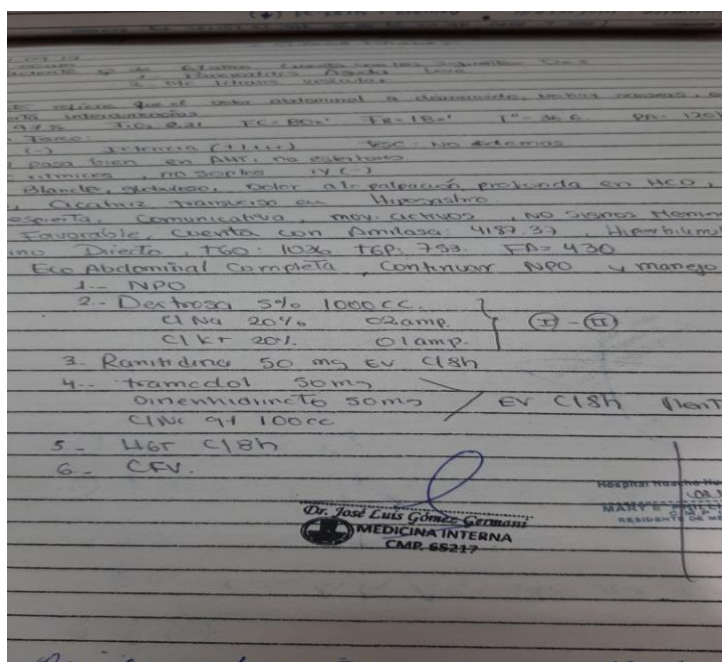 1.- Pancreatitis Aguda Leve
2.
refiere que el dolor abdominal a disminuido, no hay nauseas,
97% FiO2 0.21 FC= 80x' FR= 18x' T°= 36.6 PA= 120/
(-) Ictericia (+/+++) TSC: No edemas
pasa bien en AHT, no estertores
ritmicos, no soplos IY (-)
Blando, globuloso, Dolor a la palpación profunda en HCD,
Cicatriz transversa en Hipogastro.
Despierta, Comunicativa, mov. activos, NO signos menin
Favorable, Cuenta con Amilasa: 4187.37, Hiperbilirrub
Directo, TGO: 1036 TGP: 753. FA= 430
Eco Abdominal Completa, Continuar NPO y manejo
1.- NPO
2.- Dextrosa 5% 1000cc.
Cl Na 20% 02amp. (I) - (II)
Cl K 20% 01amp.
3. Ranitidina 50 mg EV C/8h
4.- tramadol 50mg
Dimenhidrinato 50mg EV C/8h lent
ClNa 9% 100cc
5.- HGT C/8h
6.- CFV.
Dr. José Luis Gómez Germani
MEDICINA INTERNA
CMP. 65217
Hospital Huacho
MARY E.
RESIDENTE DE ME